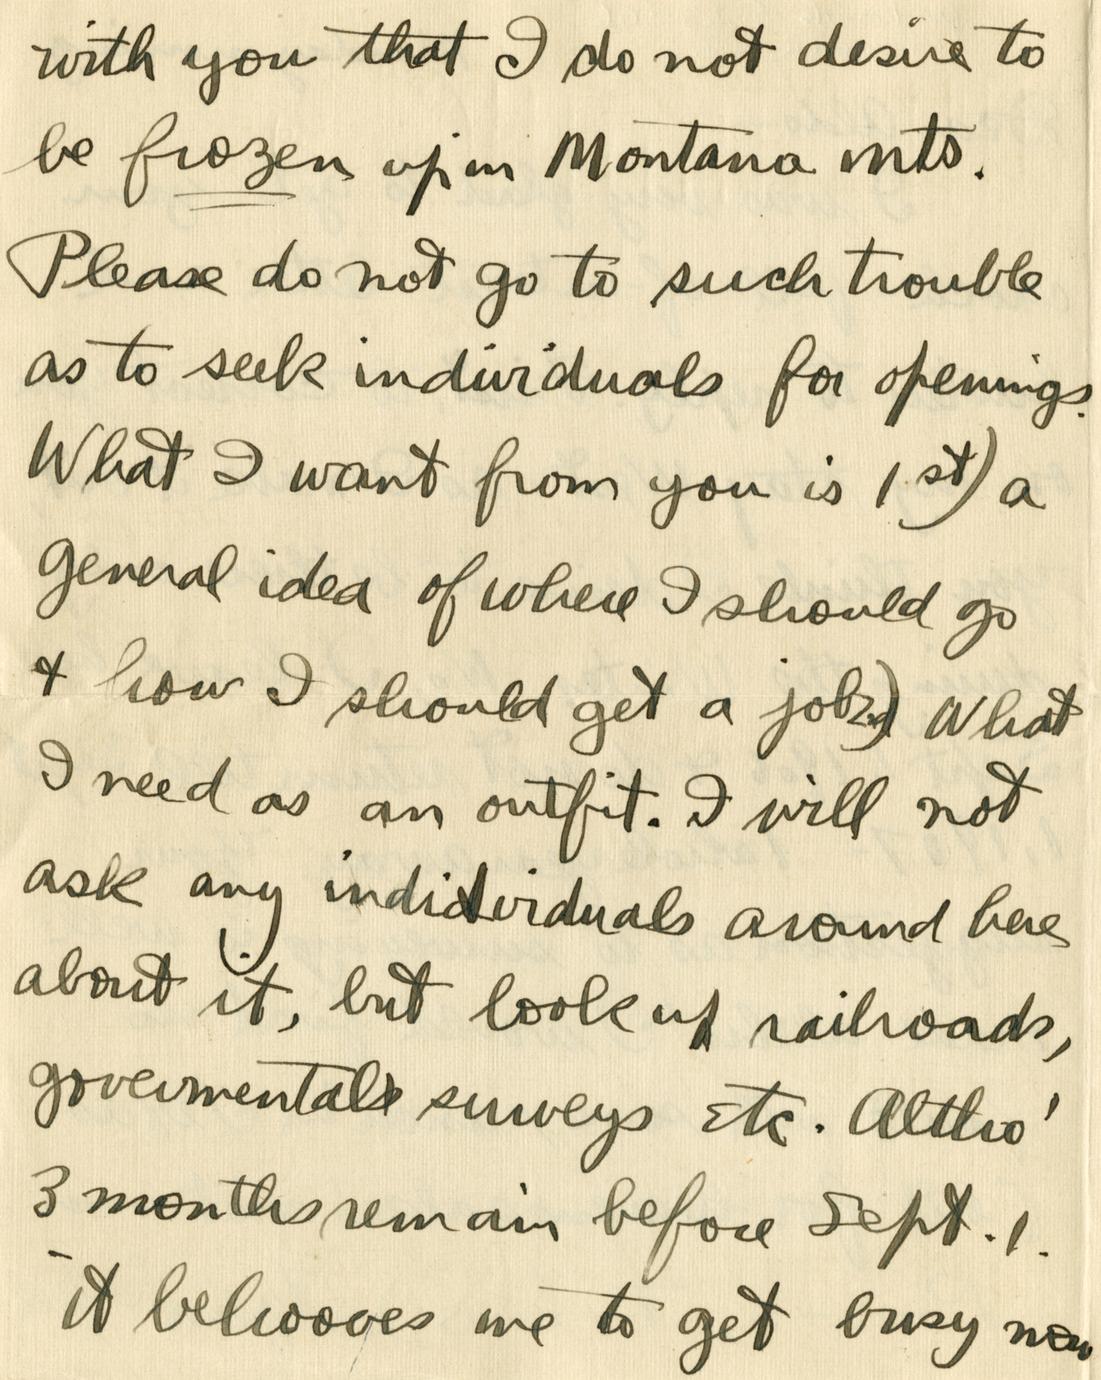 with you that I do not desire to
be frozen up in Montana mts.
Please do not go to such trouble
as to seek individuals for openings.
What I want from you is 1st) a
general idea of where I should go
+ how I should get a job 2nd) What
I need as an outfit. I will not
ask any individividuals around here
about it, but look up railroads,
govermentals surveys etc. Altho'
3 months remain before Sept. 1.
it behooves me to get busy now